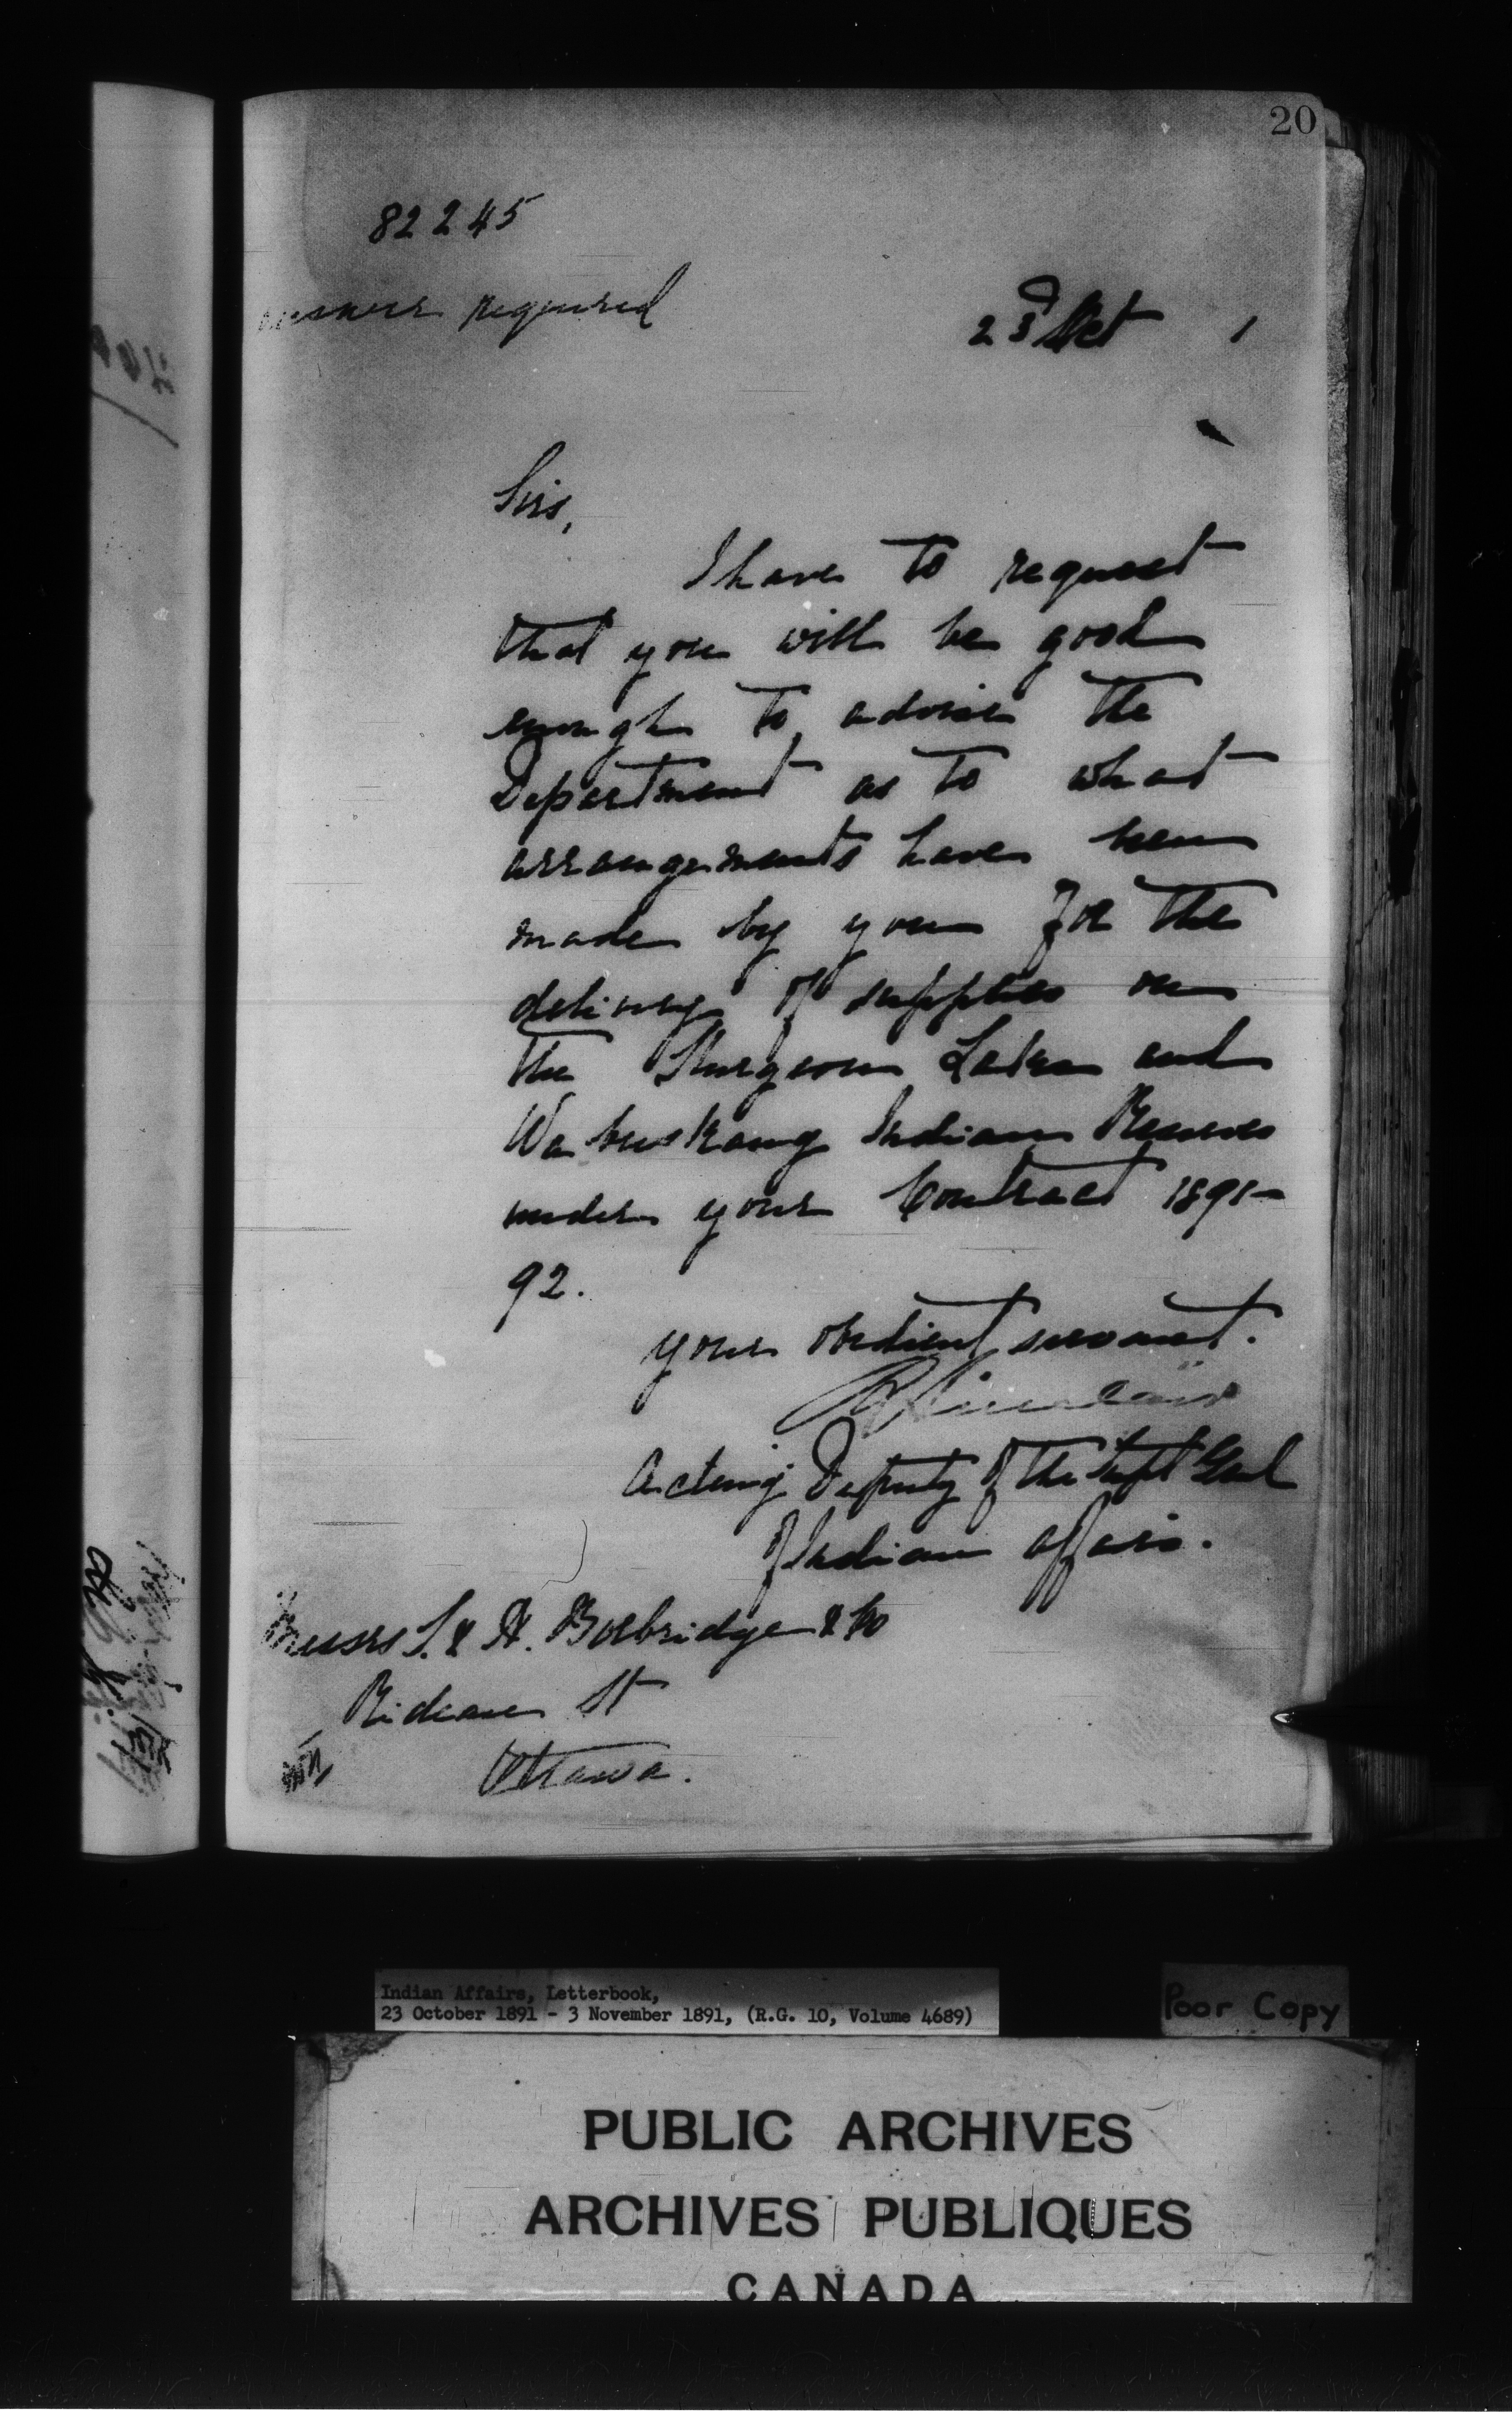 20
82245
answer required
23d Oct 1
Sirs,
I have to request
that you will be good
enough to advise the
Department as to what
arrangements have been
made by you for the
delivery of supplies on
the Sturgeon Lake and
Wabuskang Indian Reserves
under your Contract 1891-
92.
your obedient servant.
Acting Deputy of the Supt Genl
of Indian affairs.
Messrs S. & H. Borbridge & Co
Rideau St
Ottawa.
Indian Affairs, Letterbook,
23 October 1891 - 3 November 1891, (R.G. 10, Volume 4689)
Poor Copy
PUBLIC ARCHIVES
ARCHIVES PUBLIQUES
CANADA